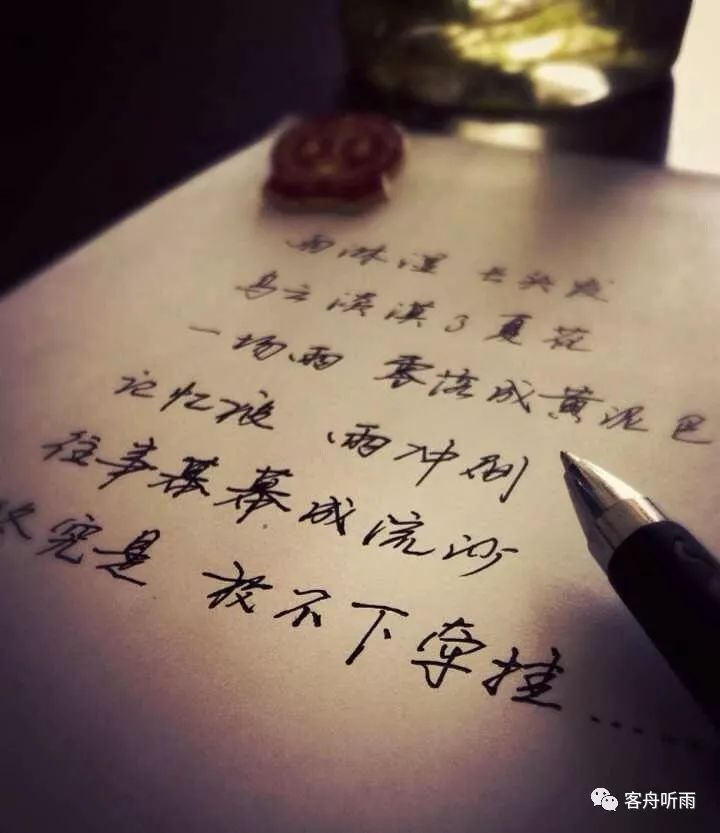 雨淋湿 长头发
乌云淡漠了夏花
一场雨 零落成黄泥巴
记忆被 雨冲刷
往事幕幕成流沙
终究是 放不下牵挂……
客舟听雨